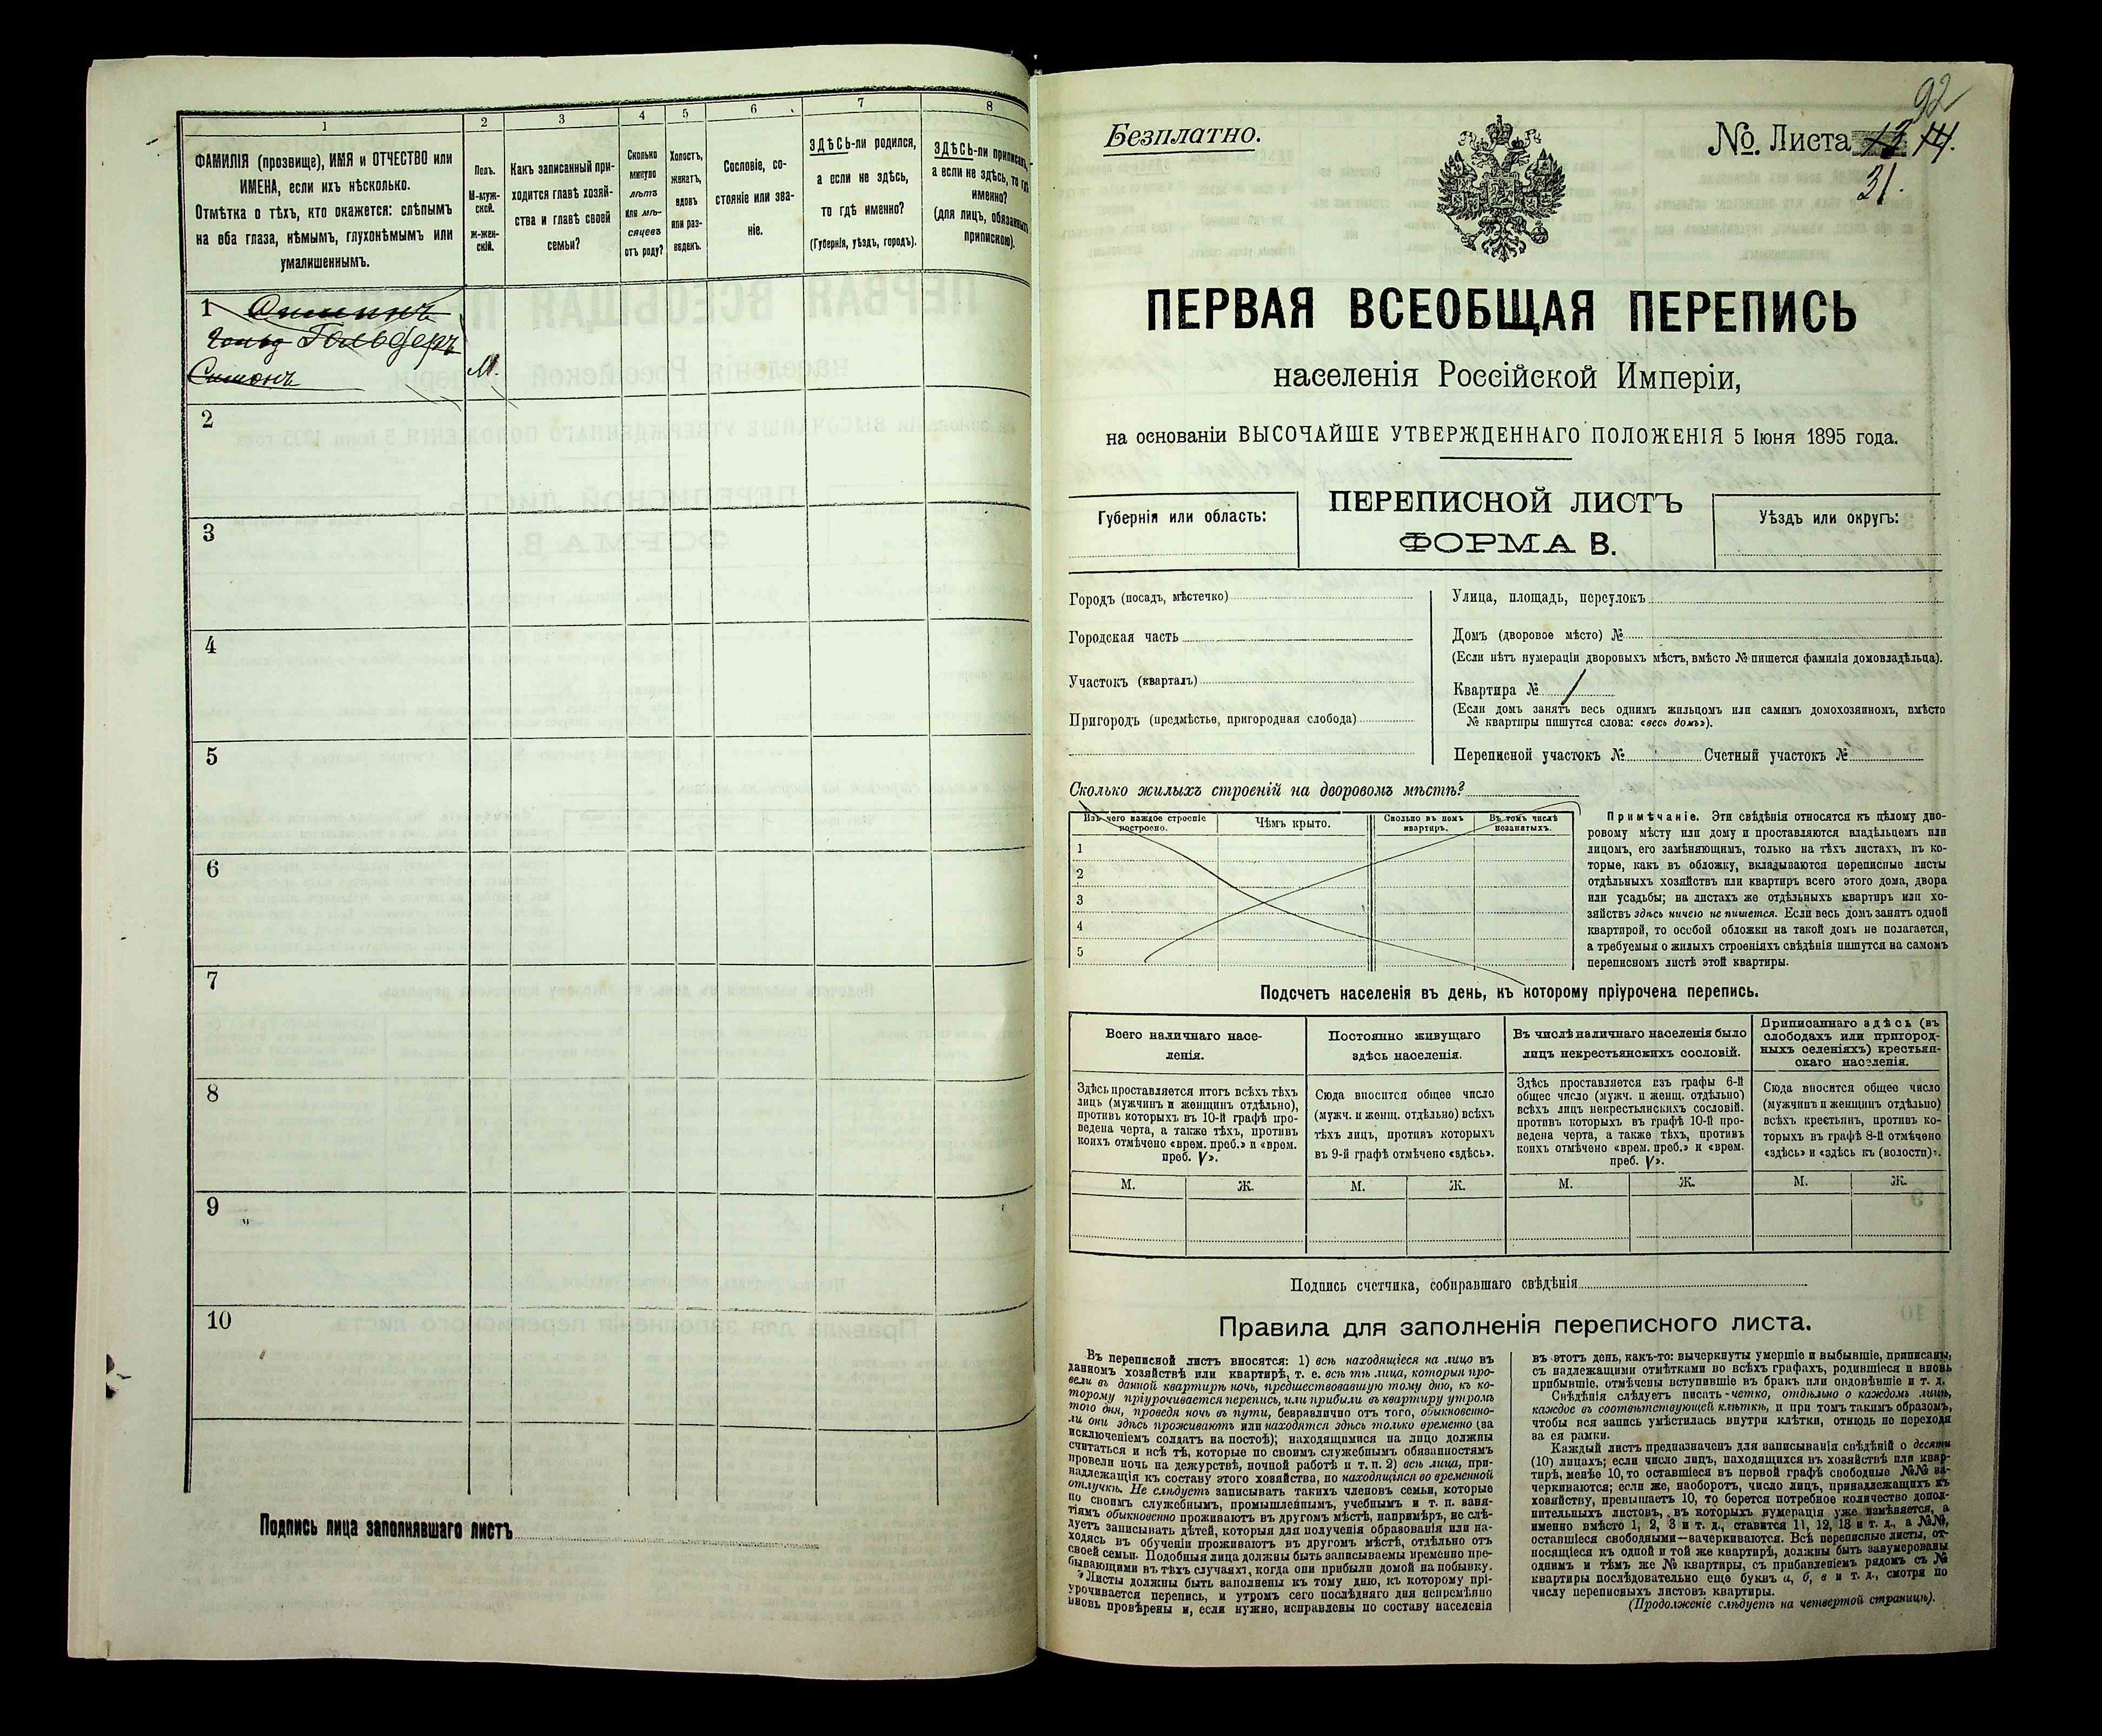 1
2
3
4
5
6
7
8
ФАМИЛІЯ (прозвище), ИМЯ и ОТЧЕСТВО или
ИМЕНА, если ихъ нѣсколько.
Отмѣтка о тѣхъ, кто окажется: слѣпымъ
на оба глаза, нѣмымъ, глухонѣмымъ или
умалишеннымъ.
Полъ.
М-муж-
ской.
ж-жен-
скій.
Какъ записанный при-
ходится главѣ хозяй-
ства и главѣ своей
семьи?
Сколько
минуло
лѣтъ
или мѣ-
сяцевъ
отъ роду?
Холостъ,
женатъ,
вдовъ
или раз-
веденъ.
Сословіе, со-
стояніе или зва-
ніе.
ЗДѢСЬ-ли родился,
а если не здѣсь,
то гдѣ именно?
(Губернія, уѣздъ, городъ).
ЗДѢСЬ-ли приписанъ,
а если не здѣсь, то гдѣ
именно?
(для лицъ, обязанныхъ
припискою).
1
Гольдферъ
Симонъ
М.
2
3
4
5
6
7
8
9
10
Подпись лица заполнявшаго листъ
92
Безплатно.
№ Листа 13 14.
31.
ПЕРВАЯ ВСЕОБЩАЯ ПЕРЕПИСЬ
населенія Россійской Имперіи,
на основаніи ВЫСОЧАЙШЕ УТВЕРЖДЕННАГО ПОЛОЖЕНІЯ 5 Іюня 1895 года.
Губернія или область:
ПЕРЕПИСНОЙ ЛИСТЪ
ФОРМА В.
Уѣздъ или округъ:
Городъ (посадъ, мѣстечко)
Городская часть
Участокъ (кварталъ)
Пригородъ (предмѣстье, пригородная слобода)
Улица, площадь, переулокъ
Домъ (дворовое мѣсто) №
(Если нѣтъ нумераціи дворовыхъ мѣстъ, вмѣсто № пишется фамилія домовладѣльца).
Квартира № 1
(Если домъ занятъ весь однимъ жильцомъ или самимъ домохозяиномъ, вмѣсто
№ квартиры пишутся слова: «весь домъ»).
Переписной участокъ № Счетный участокъ №
Сколько жилыхъ строеній на дворовомъ мѣстѣ?
Изъ чего каждое строеніе
построено.
Чѣмъ крыто.
Сколько въ немъ
квартиръ.
Въ томъ числѣ
незанятыхъ.
1
2
3
4
5
Примѣчаніе. Эти свѣдѣнія относятся къ цѣлому дво-
ровому мѣсту или дому и проставляются владѣльцемъ или
лицомъ, его замѣняющимъ, только на тѣхъ листахъ, въ ко-
торые, какъ въ обложку, вкладываются переписные листы
отдѣльныхъ хозяйствъ или квартиръ всего этого дома, двора
или усадьбы; на листахъ же отдѣльныхъ квартиръ или хо-
зяйствъ здѣсь ничего не пишется. Если весь домъ занятъ одной
квартирой, то особой обложки на такой домъ не полагается,
а требуемыя о жилыхъ строеніяхъ свѣдѣнія пишутся на самомъ
переписномъ листѣ этой квартиры.
Подсчетъ населенія въ день, къ которому пріурочена перепись.
Всего наличнаго насе-
ленія.
Постоянно живущаго
здѣсь населенія.
Въ числѣ наличнаго населенія было
лицъ некрестьянскихъ сословій.
Приписаннаго здѣсь (въ
слободахъ или пригород-
ныхъ селеніяхъ) крестьян-
скаго населенія.
Здѣсь проставляется итогъ всѣхъ тѣхъ
лицъ (мужчинъ и женщинъ отдѣльно),
противъ которыхъ въ 10-й графѣ про-
ведена черта, а также тѣхъ, противъ
коихъ отмѣчено «врем. преб.» и «врем.
преб. V».
Сюда вносится общее число
(мужч. и женщ. отдѣльно) всѣхъ
тѣхъ лицъ, противъ которыхъ
въ 9-й графѣ отмѣчено «здѣсь».
Здѣсь проставляется изъ графы 6-й
общее число (мужч. и женщ. отдѣльно)
всѣхъ лицъ некрестьянскихъ сословій.
противъ которыхъ въ графѣ 10-й про-
ведена черта, а также тѣхъ, противъ
коихъ отмѣчено «врем. преб.» и «врем.
преб. V».
Сюда вносится общее число
(мужчинъ и женщинъ отдѣльно)
всѣхъ крестьянъ, противъ ко-
торыхъ въ графѣ 8-й отмѣчено
«здѣсь» и «здѣсь къ (волости)».
М. Ж. М. Ж. М. Ж. М. Ж.
Подпись счетчика, собиравшаго свѣдѣнія
Правила для заполненія переписного листа.
Въ переписной листъ вносятся: 1) всѣ находящіеся на лицо въ
данномъ хозяйствѣ или квартирѣ, т. е. всѣ тѣ лица, которыя про-
вели въ данной квартирѣ ночь, предшествовавшую тому дню, къ ко-
торому пріурочивается перепись, или прибыли въ квартиру утромъ
того дня, проведя ночь въ пути, безразлично отъ того, обыкновенно-
ли они здѣсь проживаютъ или находятся здѣсь только временно (за
исключеніемъ солдатъ на постоѣ); находящимися на лицо должны
считаться и всѣ тѣ, которые по своимъ служебнымъ обязанностямъ
провели ночь на дежурствѣ, ночной работѣ и т. п. 2) всѣ лица, при-
надлежащія къ составу этого хозяйства, но находящіяся во временной
отлучкѣ. Не слѣдуетъ записывать такихъ членовъ семьи, которые
по своимъ служебнымъ, промышленнымъ, учебнымъ и т. п. заня-
тіямъ обыкновенно проживаютъ въ другомъ мѣстѣ, напримѣръ, не слѣ-
дуетъ записывать дѣтей, которыя для полученія образованія или на-
ходясь въ обученіи проживаютъ въ другомъ мѣстѣ, отдѣльно отъ
своей семьи. Подобныя лица должны быть записываемы временно пре-
бывающими въ тѣхъ случаяхъ, когда они прибыли домой на побывку.
Листы должны быть заполнены къ тому дню, къ которому прі-
урочивается перепись, и утромъ сего послѣдняго дня непремѣнно
вновь провѣрены и, если нужно, исправлены по составу населенія
въ этотъ день, какъ-то: вычеркнуты умершіе и выбывшіе, приписаны,
съ надлежащими отмѣтками во всѣхъ графахъ, родившіеся и вновь
прибывшіе, отмѣчены вступившіе въ бракъ или овдовѣвшіе и т. д.
Свѣдѣнія слѣдуетъ писать четко, отдѣльно о каждомъ лицѣ,
каждое въ соотвѣтствующей клѣткѣ, и при томъ такимъ образомъ,
чтобы вся запись умѣстилась внутри клѣтки, отнюдь не переходя
за ея рамки.
Каждый листъ предназначенъ для записыванія свѣдѣній о десяти
(10) лицахъ; если число лицъ, находящихся въ хозяйствѣ или квар-
тирѣ, менѣе 10, то оставшіеся въ первой графѣ свободные №№ за-
черкиваются; если же, наоборотъ, число лицъ, принадлежащихъ къ
хозяйству, превышаетъ 10, то берется потребное количество допол-
нительныхъ листовъ, въ которыхъ нумерація уже измѣняется, а
именно вмѣсто 1, 2, 3 и т. д., ставится 11, 12, 13 и т. д., а №№,
оставшіеся свободными—зачеркиваются. Всѣ переписные листы, от-
носящіеся къ одной и той же квартирѣ, должны быть занумерованы
однимъ и тѣмъ же № квартиры, съ прибавленіемъ рядомъ съ №
квартиры послѣдовательно еще буквъ а, б, в и т. д., смотря по
числу переписныхъ листовъ квартиры.
(Продолженіе слѣдуетъ на четвертой страницѣ).